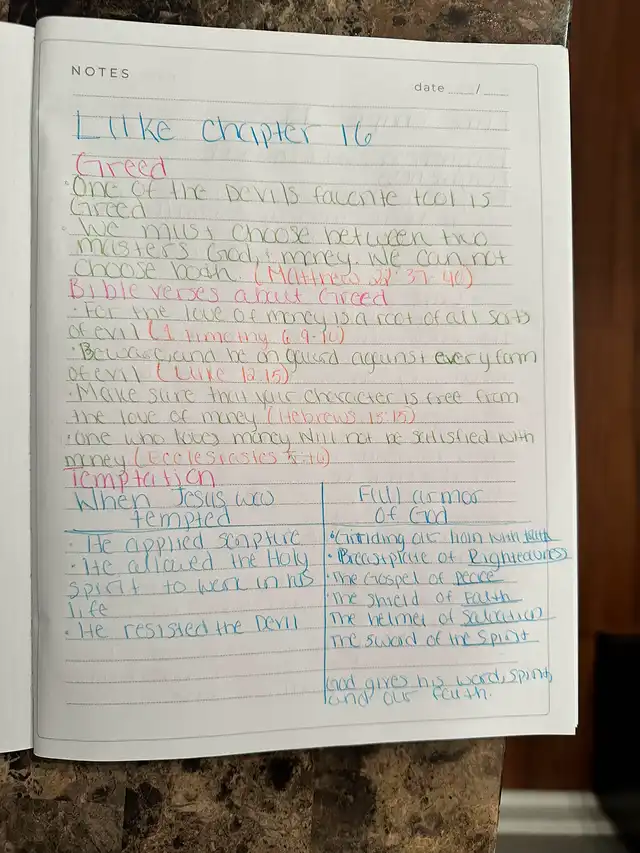 NOTES
date ___/___
Luke chapter 16
Greed
• One of the Devils favorite tool is
Greed
• We must choose between two
masters God, & money. We can not
choose both. (Matthew 22:37-40)
Bible verses about Greed
• For the love of money is a root of all sorts
of evil (1 Timothy 6 9-10)
• Beware, and be on guard against every form
of evil (Luke 12:15)
• Make sure that your character is free from
the love of money (Hebrews 13:15)
• One who loves money will not be satisfied with
money (Ecclesiastes 5:10)
Temptation
When Jesus was
tempted
• He applied scripture
• He allowed the Holy
spirit to work in his
life
• He resisted the Devil
Full armor
of God
• Girding our loin with
• Breastplate of Righteousness
• The Gospel of peace
The shield of Faith
The helmet of Salvation
The sword of the Spirit
God gives his word, spirit,
and our faith.